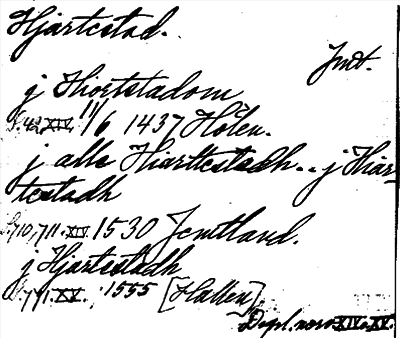 Hjärtestad.
Jmt.
j Hiortstadom
S. 42, XIV. 11/6 1437 Hofen.
j alle Hiarttestadh.. j Hiar-
testadh
S. 710, 711. XIV. 1530 Jemtland.
j Hjartestadh
S. 771. XV. 1555 [Hallen]
Dipl. norv. XIV. XV.